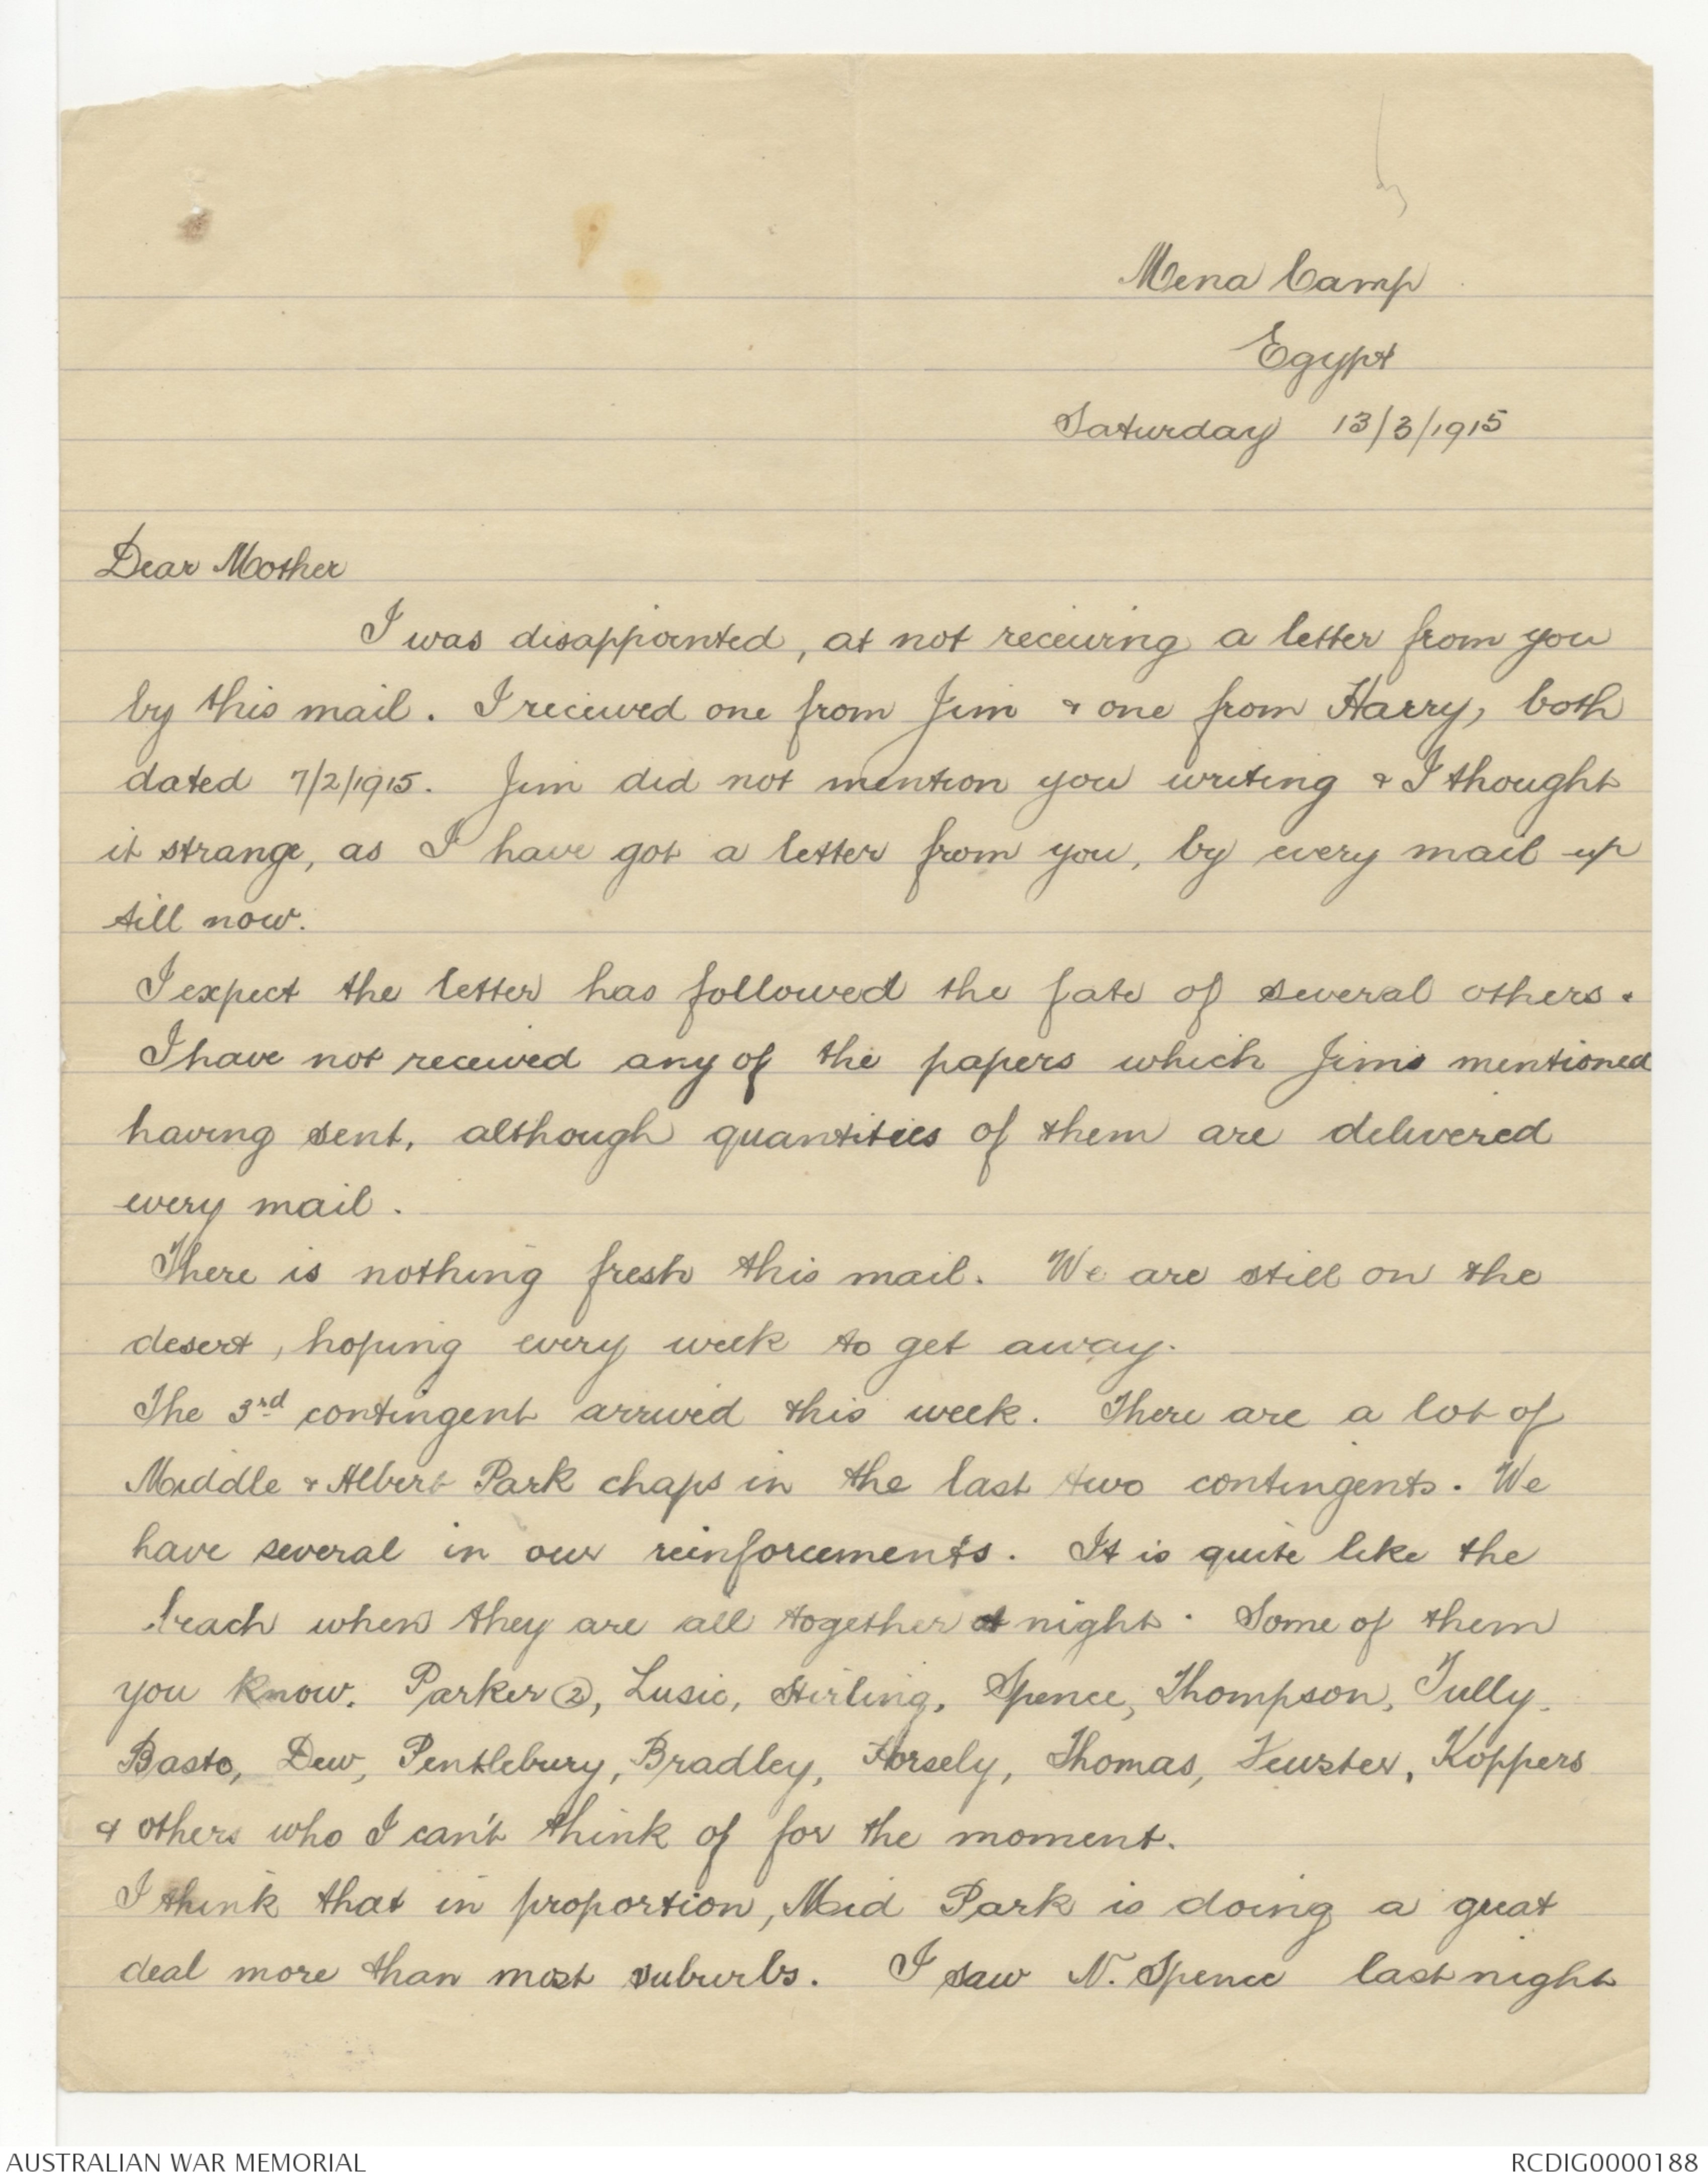 Mena Camp
Egypt
Saturday 13/3/1915
Dear Mother
I was disappointed, at not receiving a letter from you
by this mail. I received one from Jim & one from Harry, both
dated 7/2/1915. Jim did not mention you writing & I thought
it strange, as I have got a letter from you, by every mail up
till now.
I expect the letter has followed the fate of several others.
I have not received any of the papers which Jims mentioned
having sent, although quantities of them are delivered
every mail.
There is nothing fresh this mail. We are still on the
desert, hoping every week to get away.
The 3rd contingent arrived this week. There are a lot of
Middle & Albert Park chaps in the last two contingents. We
have several in our reinforcements. It is quite like the
beach when they are all together at night. Some of them
you know. Parker ②, Lusic, Stirling, Spence, Thompson, Tully.
Basto, Dew, Pentlebury, Bradley, Horsely, Thomas, Koppers
& others who I can't think of for the moment.
I think that in proportion, Mid Park is doing a great
deal more than most suburbs. I saw N. Spence last night
AUSTRALIAN WAR MEMORIAL
RCDIG0000188